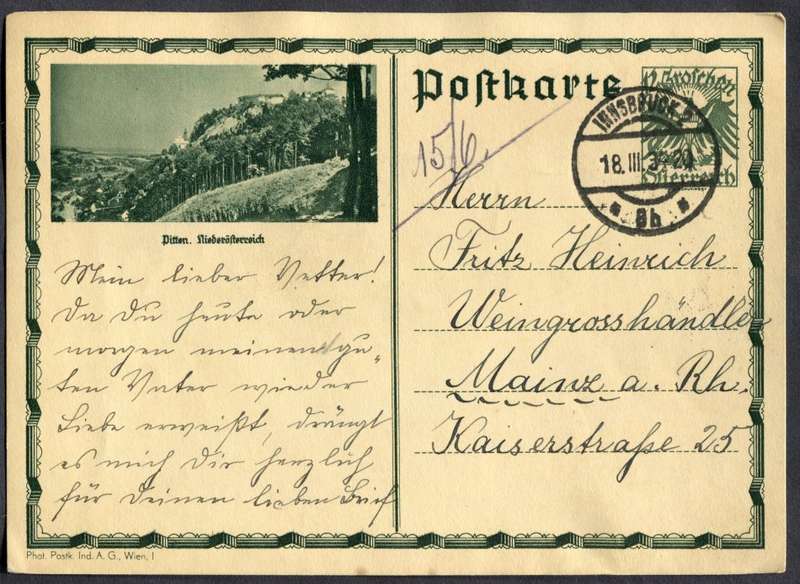 Postkarte
12 Groschen
Österreich
INNSBRUCK 2
18. III. 34-20
* 8b *
15/6.
Pitten. Niederösterreich
Herrn
Fritz Heinrich
Weingrosshändler
Mainz a. Rh.
Kaiserstraße 25
Mein lieber Vetter!
Da Du heute oder
morgen meinen gu„
ten Vater wieder
Liebe erweißt, drängt
es mich Dir herzlich
für Deinen lieben Brief
Phot. Postk. Ind. A. G., Wien, I